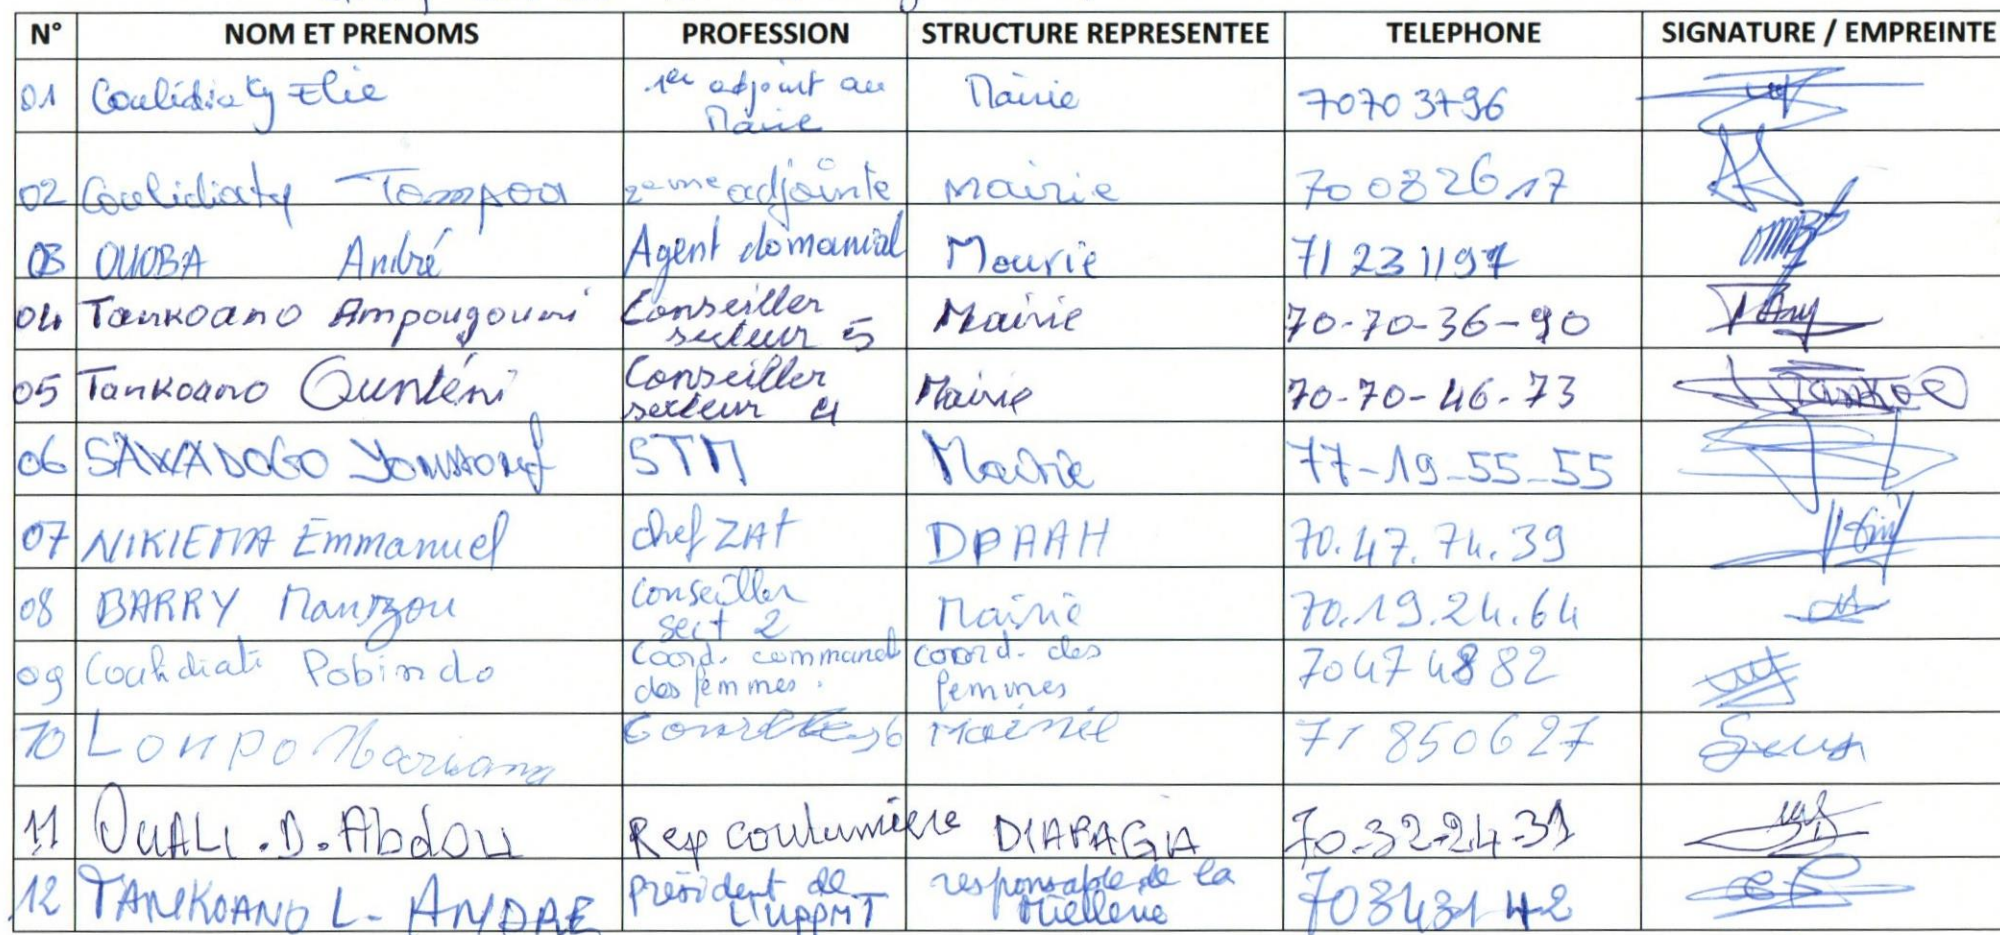 N° NOM ET PRENOMS PROFESSION STRUCTURE REPRESENTEE TELEPHONE SIGNATURE / EMPREINTE
01 Coulidiaty Elie 1er adjoint au Maire Mairie 70703796
02 Coulidiaty Tampoa 2eme adjointe Mairie 70082617
03 OUOBA André Agent domanial Mairie 71231197
04 Tankoano Ampougouni Conseiller secteur 5 Mairie 70-70-36-90
05 Tankoano Ounténi Conseiller secteur 4 Mairie 70-70-46-73
06 SAWADOGO Youssouf STM Mairie 77-19-55-55
07 NIKIEMA Emmanuel chef ZAT DPAAH 70.47.74.39
08 BARRY Conseiller sect 2 Mairie 70.19.24.64
09 Coulidiati Pobindo Coord. communal des femmes. coord. des femmes 70474882
10 Lonpo Mariama Mairie 71850627
11 OUALI.D.Abdou Rep coutumière DIAPAGA 70-32-24-31
12 TANKOANO L- ANDRE président de L'UPPMT responsable de la Miellerie 70343142